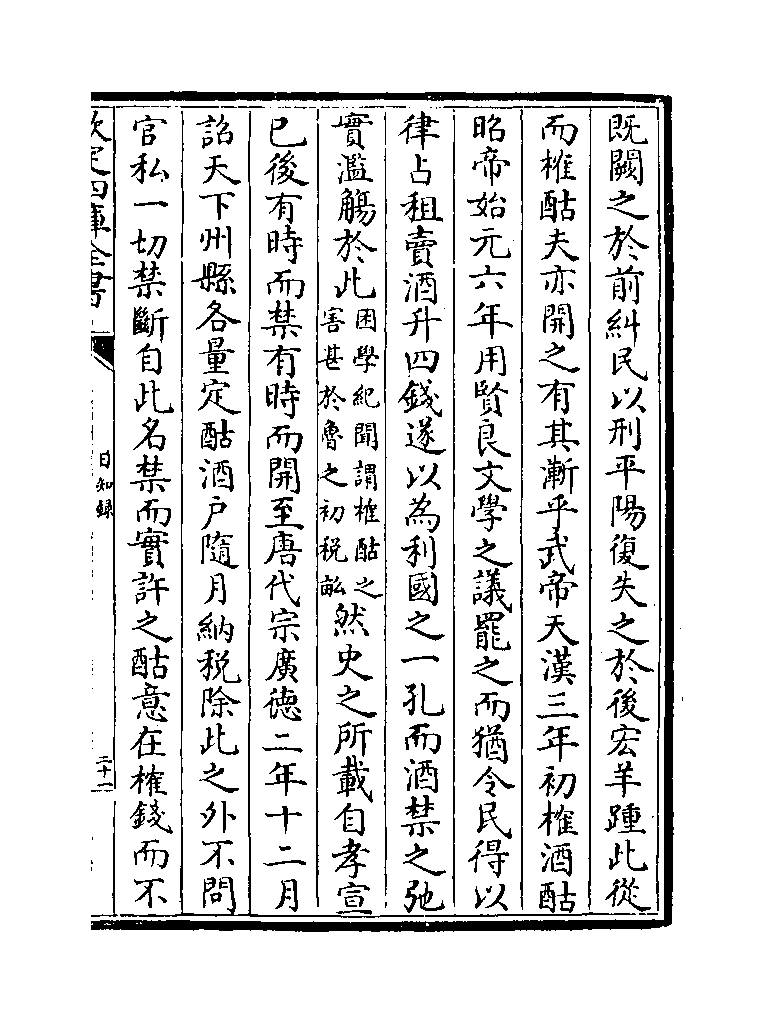 既闕之於前糾民以刑平陽復失之於後宏羊踵此從
而榷酤夫亦開之有其漸乎武帝天漢三年初榷酒酤
昭帝始元六年用賢良文學之議罷之而猶令民得以
律占租賣酒升四錢遂以為利國之一孔而酒禁之弛
實濫觴於此困學紀聞謂榷酤之害甚於魯之初税畝然史之所載自孝宣
已後有時而禁有時而開至唐代宗廣徳二年十二月
詔天下州縣各量定酤酒户隨月納税除此之外不問
官私一切禁斷自此名禁而實許之酤意在榷錢而不
欽定四庫全書
日知録
二十一